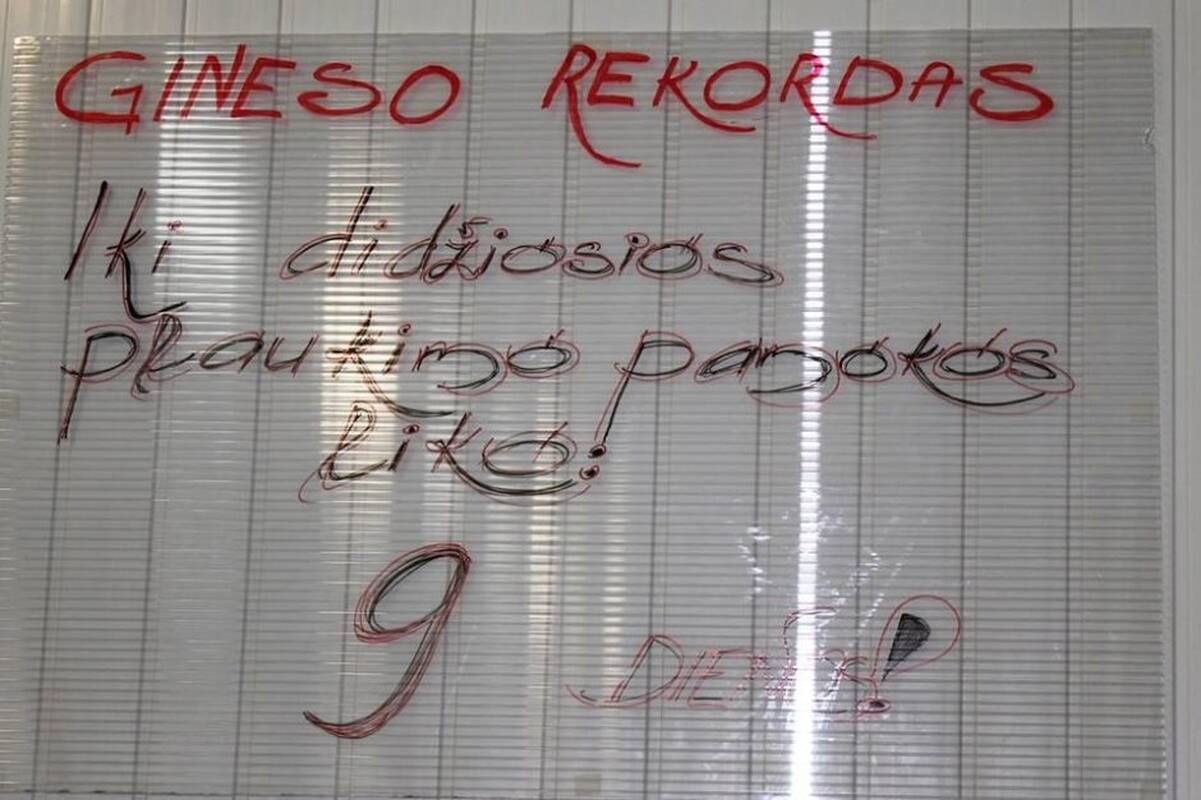 GINESO REKORDAS
Iki didžiosios
plaukimo pamokos
liko:
9 DIENOS!